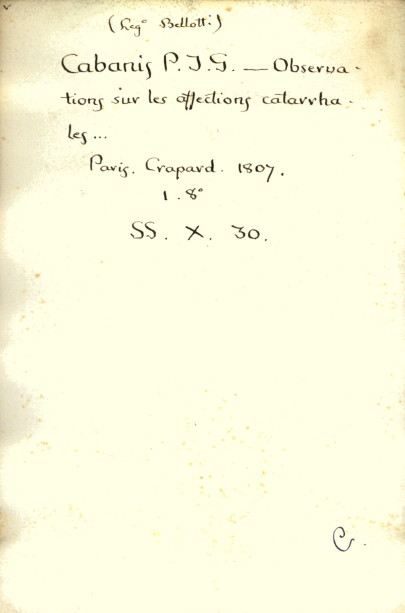 (Leg.º Bellotti)
Cabanis P. J. G. — Observa-
tions sur les affections catarrha-
les...
Paris. Crapard. 1807.
1. 8º
SS. X. 30.